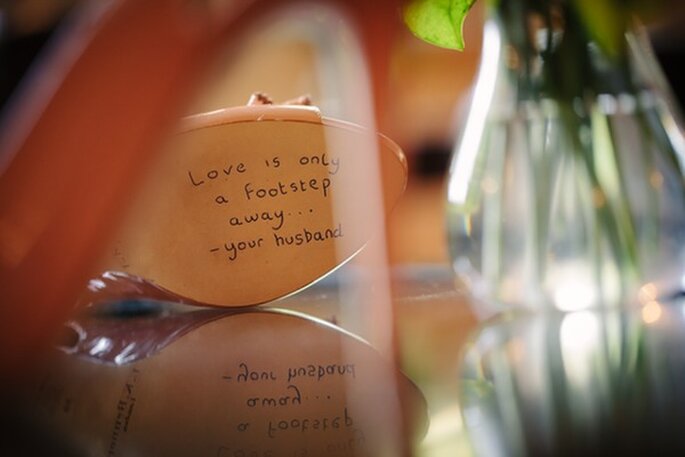 Love is only
a footstep
away...
-your husband